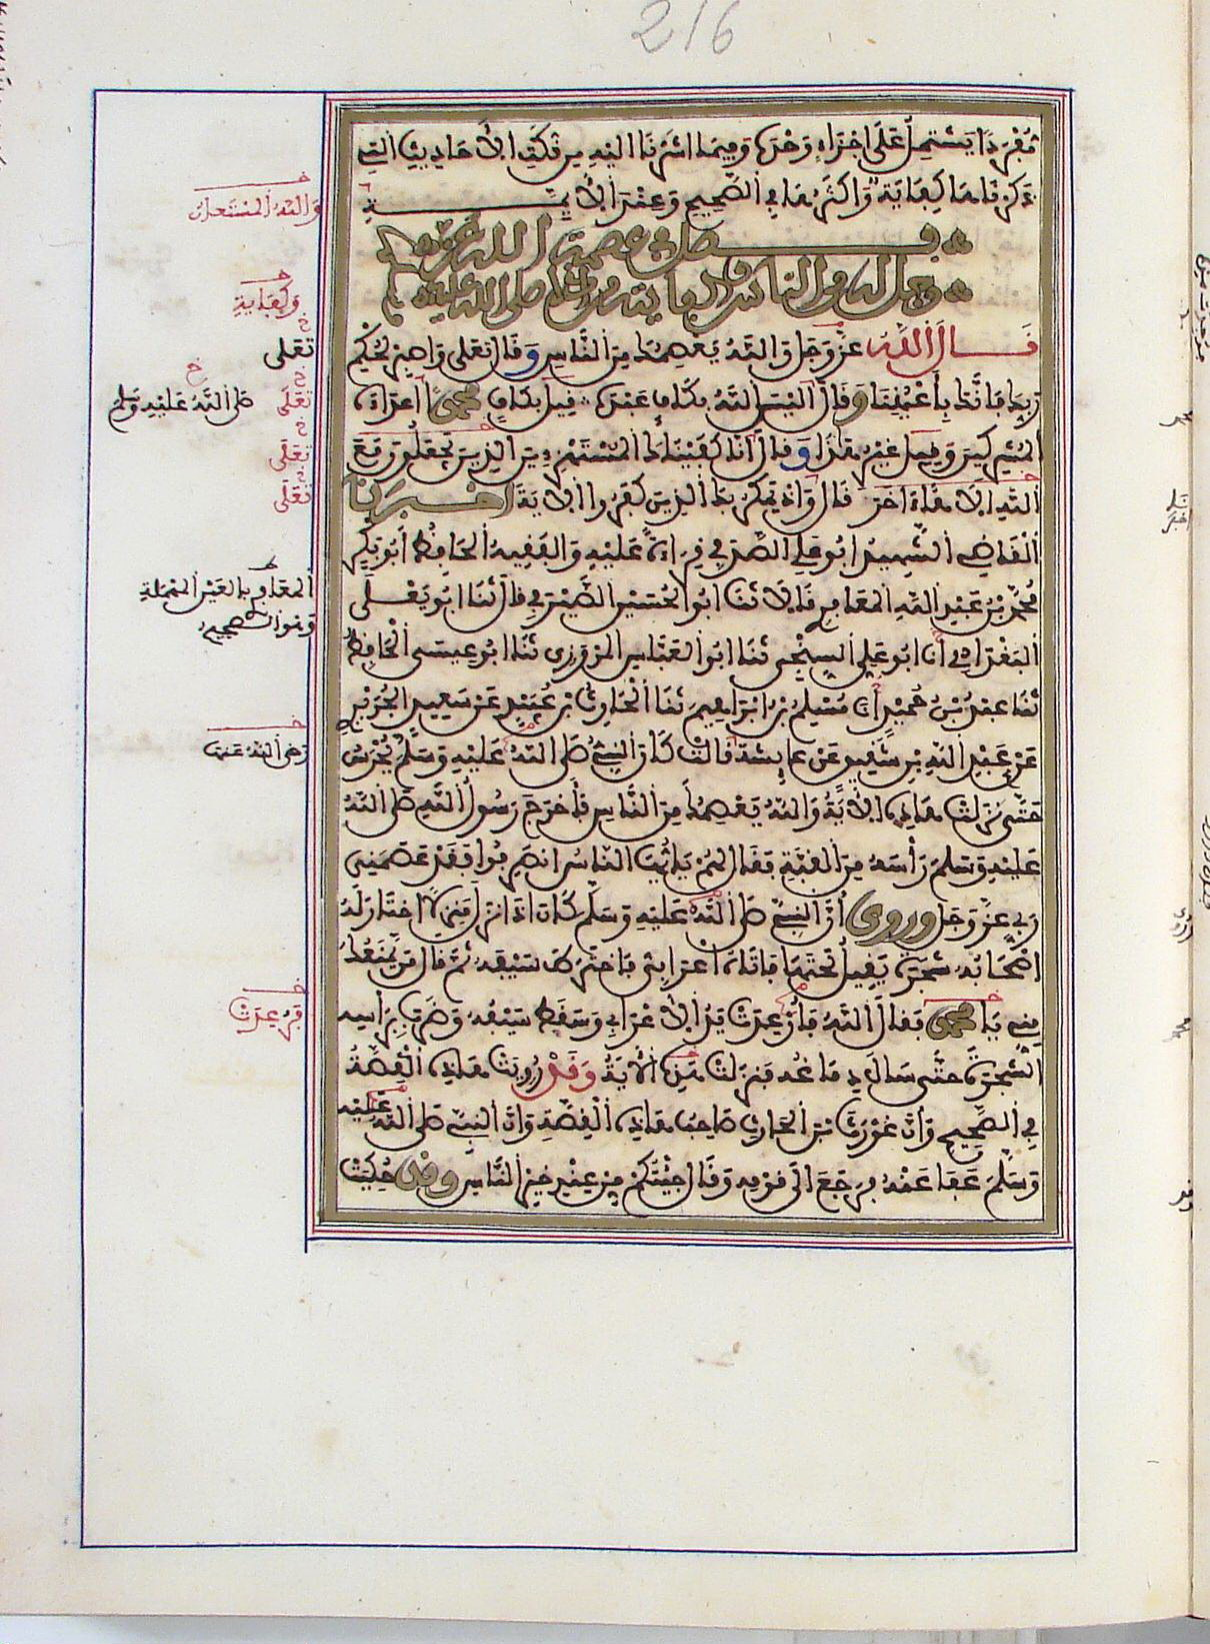 216
مُفْرَدًا يَشْتَمِلُ عَلَى أَجْزَاءٍ وَحْدَهَا وَفِيمَا أَشَرْنَا إِلَيْهِ مِن نُكَتِ الأَحَادِيثِ التِي
ذَكَرْنَاهَا كِفَايَةٌ وَأَكْثَرُهَا فِي الصَّحِيحِ وَعِنْدَ الأَيِمَّةِ
فصل في عصمة الله عز
وجل له من الناس وكفايته من صلى الله عليه
قَالَ اللَّهُ عَزَّ وَجَلَّ وَاللَّهُ يَعْصِمُكَ مِنَ النَّاسِ وَقَالَ تَعَلَى وَاصْبِرْ لِحُكْمِ
رَبِّكَ فَإِنَّكَ بِأَعْيُنِنَا وَقَالَ أَلَيْسَ اللَّهُ بِكَافٍ عَبْدَهُ قِيلَ بِكَافٍ مُحَمَّدًا أَعْدَاءَهُ
الْمُشْرِكِينَ وَقِيلَ غَيْرُ هَذَا وَقَالَ إِنَّا كَفَيْنَاكَ الْمُسْتَهْزِءِينَ الذِينَ يَجْعَلُونَ مَعَ
اللَّهِ إِلَاهًا آخَرَ قَالَ وَإِذْ يَمْكُرُ بِكَ الذِينَ كَفَرُوا الآيَةَ أَخْبَرَنَا
الْقَاضِي الشَّهِيدُ أَبُو عَلِي الصَّدَفِي قِرَاءَةً عَلَيْهِ وَالْفَقِيهُ الْحَافِظُ أَبُو بَكْرٍ
مُحَمَّدُ بْنُ عَبْدِ اللَّهِ الْمَعَافِرِي قَالَا ثَنَا أَبُو الْحُسَيْنِ الصَّيْرَفِي قَالَ ثَنَا أَبُو يَعْلَى
الْبَغْدَادِي أَنَا أَبُو عَلِي السِّنْجِي ثَنَا أَبُو الْعَبَّاسِ الْمَرْوَزِي ثَنَا أَبُو عِيسَى الْحَافِظُ
ثَنَا عَبْدُ بْنُ حُمَيْدٍ أَنَا مُسْلِمُ بْنُ إِبْرَاهِيمَ ثَنَا الْحَارِثُ بْنُ عُبَيْدٍ عَنْ سَعِيدٍ الْجُرَيْرِي
عَنْ عَبْدِ اللَّهِ بْنِ شَقِيقٍ عَنْ عَايِشَةَ قَالَتْ كَانَ النَّبِيُّ صَلَّى اللَّهُ عَلَيْهِ وَسَلَّمَ يُحْرَسُ
حَتَّى نَزَلَتْ هَذِهِ الآيَةُ وَاللَّهُ يَعْصِمُكَ مِنَ النَّاسِ فَأَخْرَجَ رَسُولُ اللَّهِ صَلَّى اللَّهُ
عَلَيْهِ وَسَلَّمَ رَأْسَهُ مِنَ الْقُبَّةِ فَقَالَ لَهُمْ يَا أَيُّهَا النَّاسُ انْصَرِفُوا فَقَدْ عَصَمَنِي
رَبِّي عَزَّ وَجَلَّ وروى أَنَّ النَّبِيَّ صَلَّى اللَّهُ عَلَيْهِ وَسَلَّمَ كَانَ إِذَا نَزَلَ مَنْزِلًا اخْتَارَ لَهُ
أَصْحَابُهُ شَجَرَةً يَقِيلُ تَحْتَهَا فَأَتَاهُ أَعْرَابِيٌّ فَاخْتَرَطَ سَيْفَهُ ثُمَّ قَالَ مَنْ يَمْنَعُكَ
مِنِّي يَا مُحَمَّدُ فَقَالَ اللَّهُ فَأُرْعِدَتْ يَدُ الأَعْرَابِي وَسَقَطَ سَيْفُهُ وَضَرَبَ بِرَأْسِهِ
الشَّجَرَةَ حَتَّى سَالَ دِمَاغُهُ فَنَزَلَتْ هَذِهِ الآيَةُ وَقَدْ رُوِيَتْ هَذِهِ الْقِصَّةُ
فِي الصَّحِيحِ وَأَنَّ غَوْرَثَ بْنَ الْحَارِثِ صَاحِبُ هَذِهِ الْقِصَّةِ وَأَنَّ النَّبِيَّ صَلَّى اللَّهُ عَلَيْهِ
وَسَلَّمَ عَفَا عَنْهُ فَرَجَعَ إِلَى قَوْمِهِ وَقَالَ جِئْتُكُمْ مِنْ عِنْدِ خَيْرِ النَّاسِ وقد حُكِيَتْ
وَاللَّهُ الْمُسْتَعَانُ
وَكِفَايَةٍ
تَعَلَى
تَعَلَى
صَلَّى اللَّهُ عَلَيْهِ وَسَلَّمَ
تَعَلَى
تَعَلَى
الْمَعَافِرِي بِالْعَيْنِ الْمُهْمَلَةِ
وَهُوَ الصَّحِيحُ
رَضِيَ اللَّهُ عَنْهَا
فَرُعِدَتْ